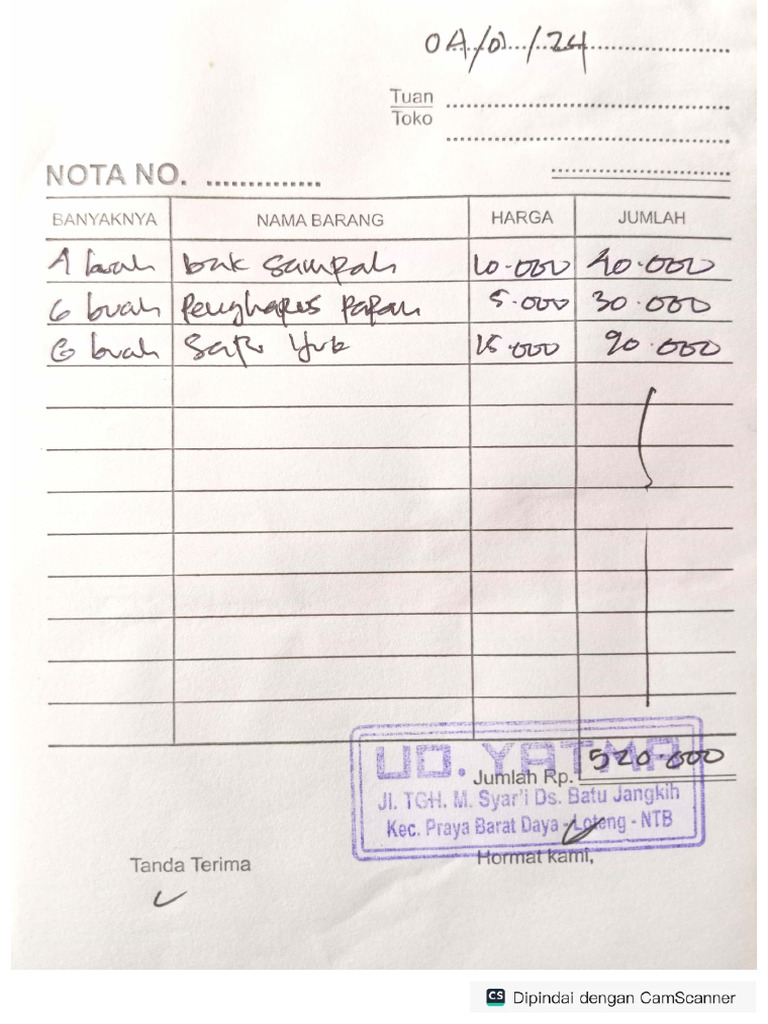 04/01/24
Tuan
Toko
NOTA NO.
BANYAKNYA NAMA BARANG HARGA JUMLAH
4 buah bak sampah 10.000 40.000
6 buah Penghapus Papan 5.000 30.000
6 buah Sapu 15.000 90.000
UD. YATMA
Jumlah Rp. 520.000
Jl. TGH. M. Syar'i Ds. Batu Jangkih
Kec. Praya Barat Daya - Loteng - NTB
Tanda Terima Hormat kami,
CS Dipindai dengan CamScanner